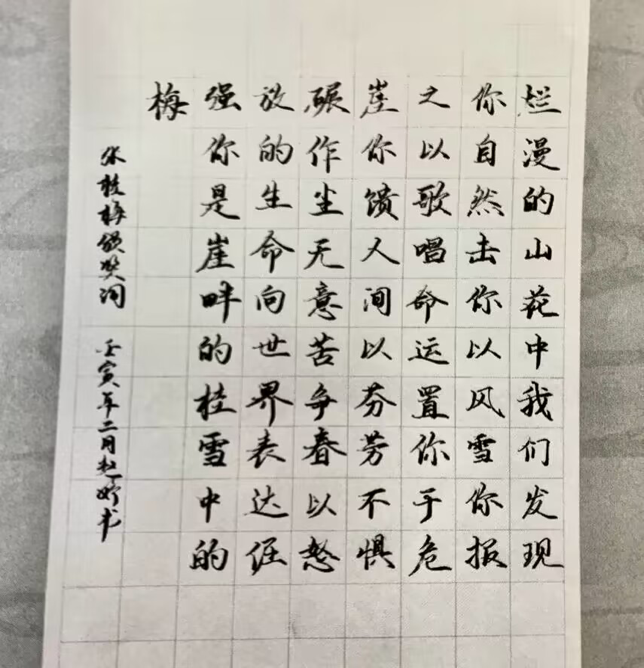 烂漫的山花中我们发现
你自然击你以风雪你报
之以歌唱命运置你于危
崖你馈人间以芬芳不惧
碾作尘无意苦争春以怒
放的生命向世界表达倔
强你是崖畔的桂雪中的
梅
张桂梅颁奖词 壬寅年二月赵书